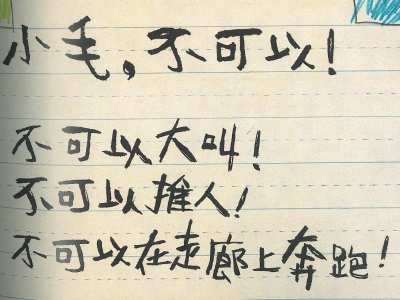 小毛,不可以!
不可以大叫!
不可以推人!
不可以在走廊上奔跑!